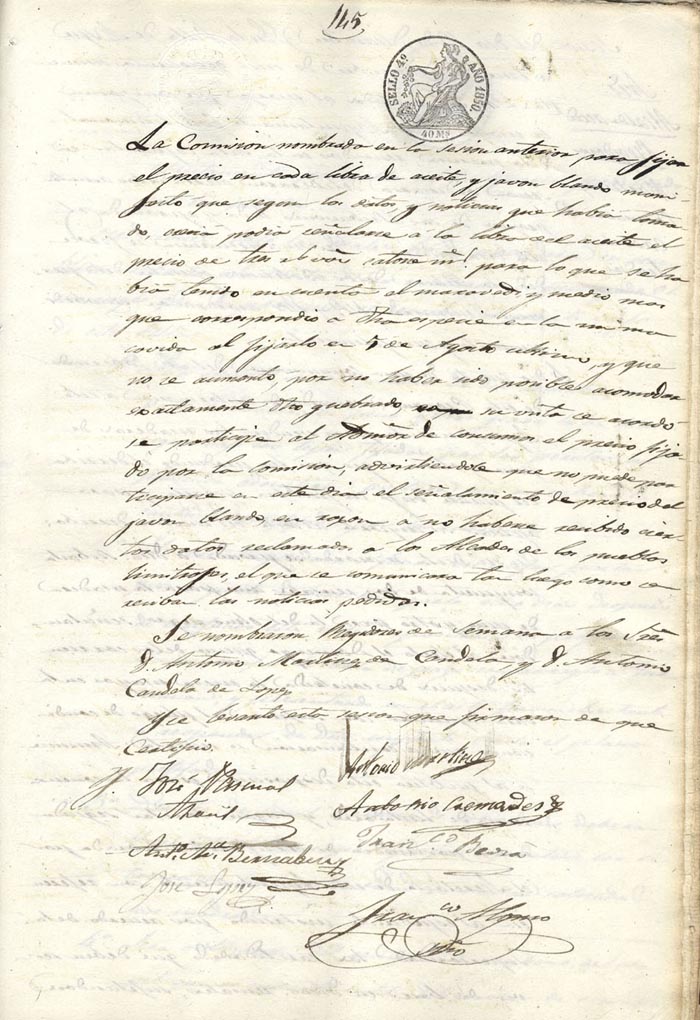 145
SELLO 4º AÑO 1850.
40 Ms
La Comision nombrada en la sesion anterior para fijar
el precio en cada libra de aceite, y javon blando mani
festo que segun los datos y noticias que habia toma
do, creia podia señalarse a la libra del aceite el
precio de tres r von catorce m para lo que se ha
bia tenido en cuenta el maravedi y medio mas
que correspondio a otra especie en la misma
al fijarlo en 5 de Agosto ultimo, y que
no se aumento, por no haber sido posible acomodar
exactamente otro quebrado, su vista se acordo
se participe al de consumos el precio fija
do por la Comision, advirtiendole que no puede par
ticiparse en este dia el señalamiento de precio del
javon blando, en razon a no haberse recibido cier
tos datos reclamados a los Alcades de los pueblos
limitrofes, el que se comunicara tan luego como se
reciban las noticias pedidas.
Se nombraron Regidores de Semana a los Sres
D. Antonio Martinez de Candela, y D. Antonio
Candela de Lopez
Y se levanto esta sesion que firmaron de que
Certifico.
José Pascual
Antonio Martinez
Antonio Cremades
Anto. Ma. Bernabeu
Franco
José Lopez
Franco Alonso